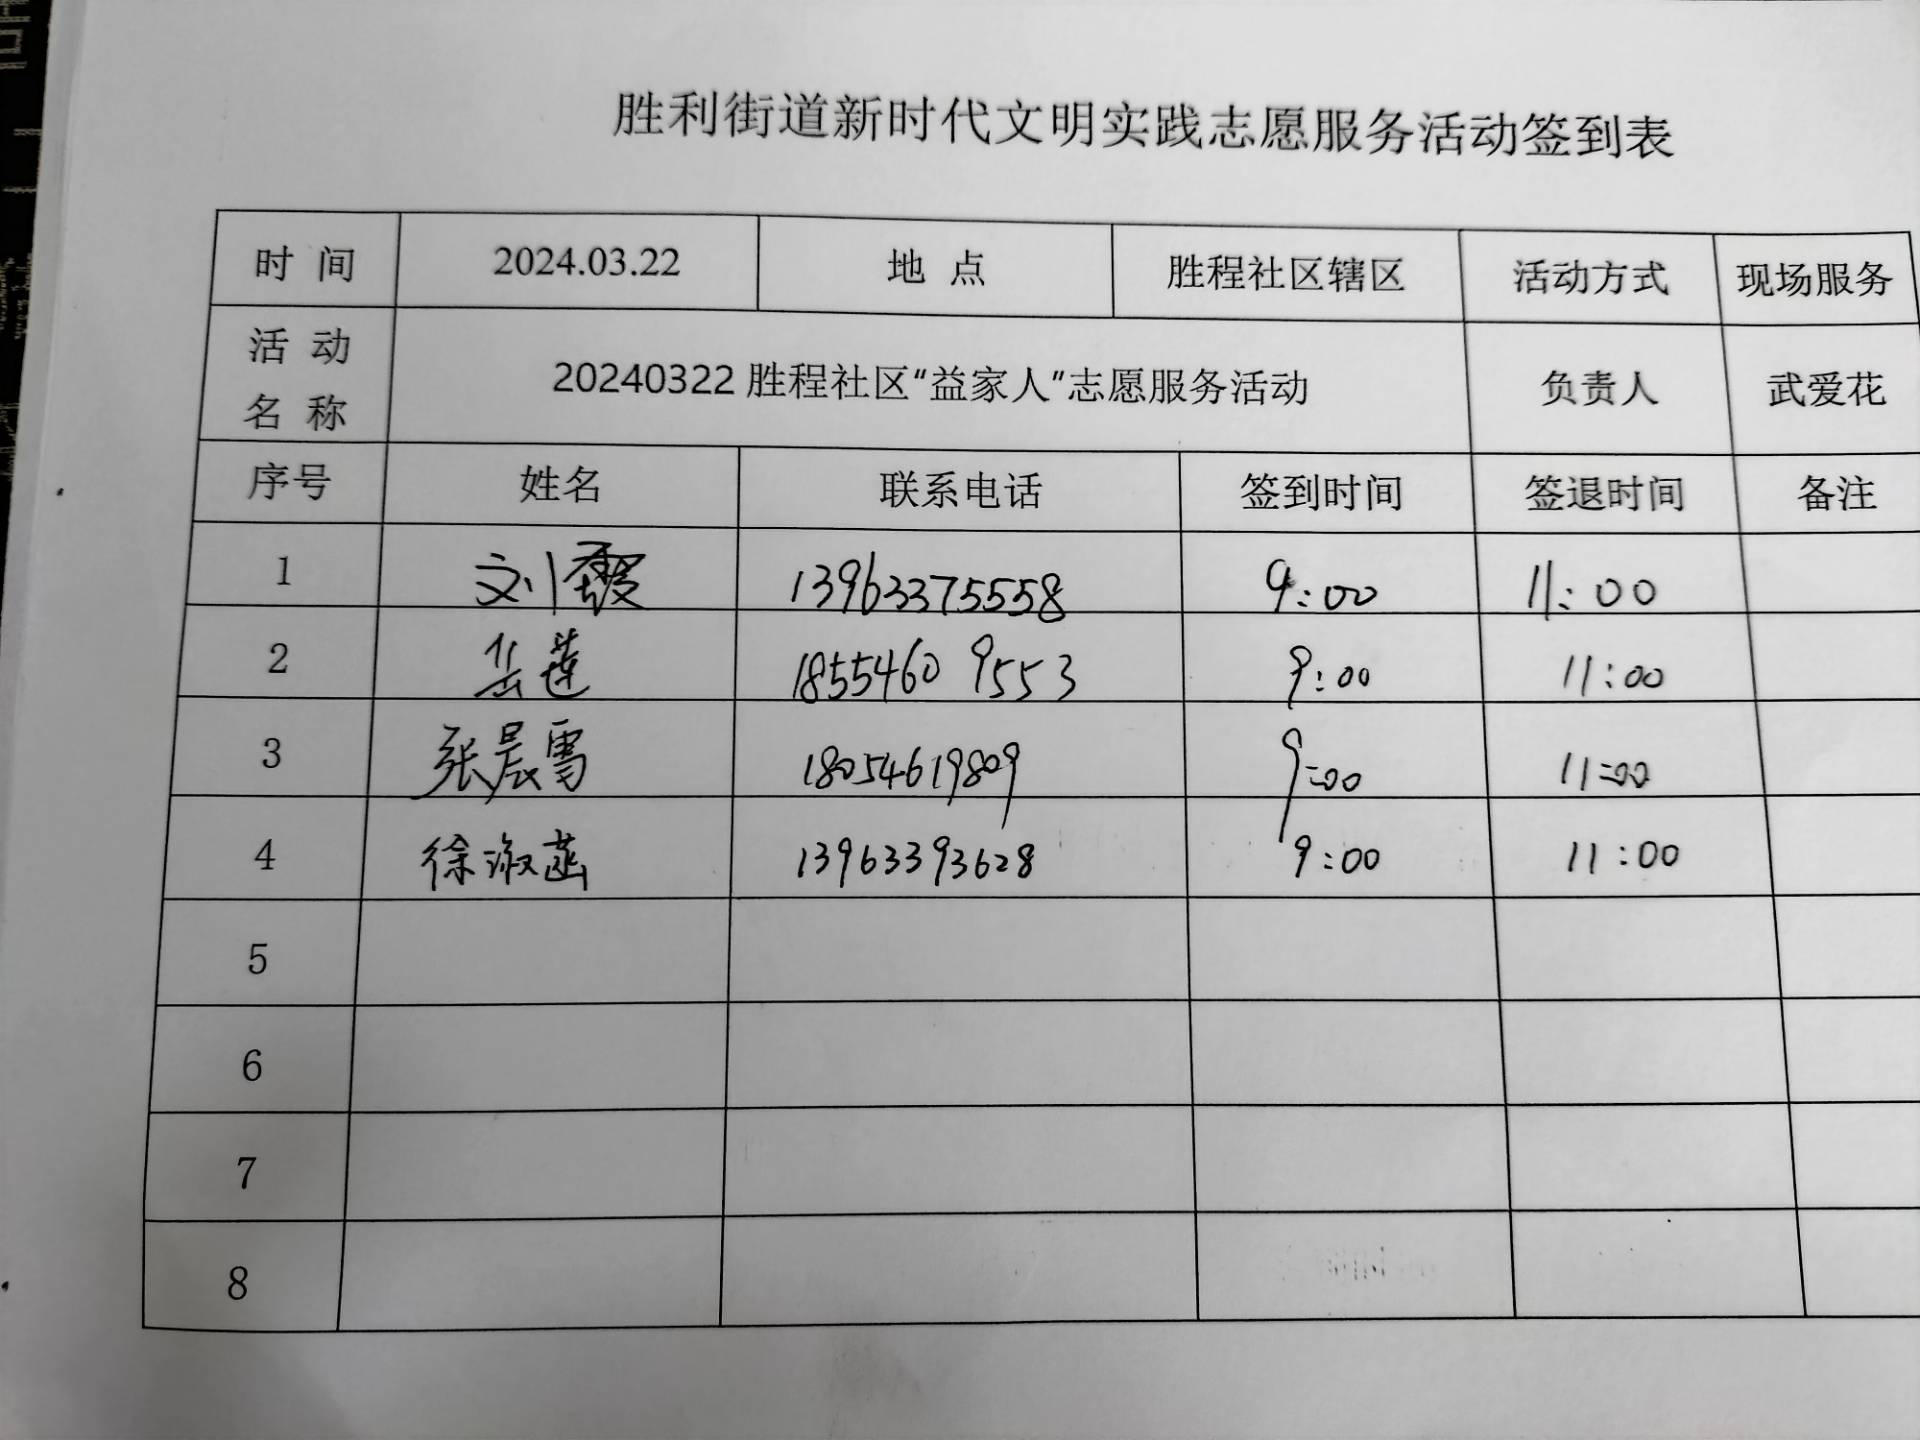 胜利街道新时代文明实践志愿服务活动签到表
时 间 2024.03.22 地 点 胜程社区辖区 活动方式 现场服务
活 动
名 称
20240322 胜程社区“益家人”志愿服务活动 负责人 武爱花
序号 姓名 联系电话 签到时间 签退时间 备注
1 刘霞 13963375558 9:00 11:00
2 岳莲 18554609553 9:00 11:00
3 张晨雪 18054619809 9:00 11:00
4 徐淑菡 13963393628 9:00 11:00
5
6
7
8